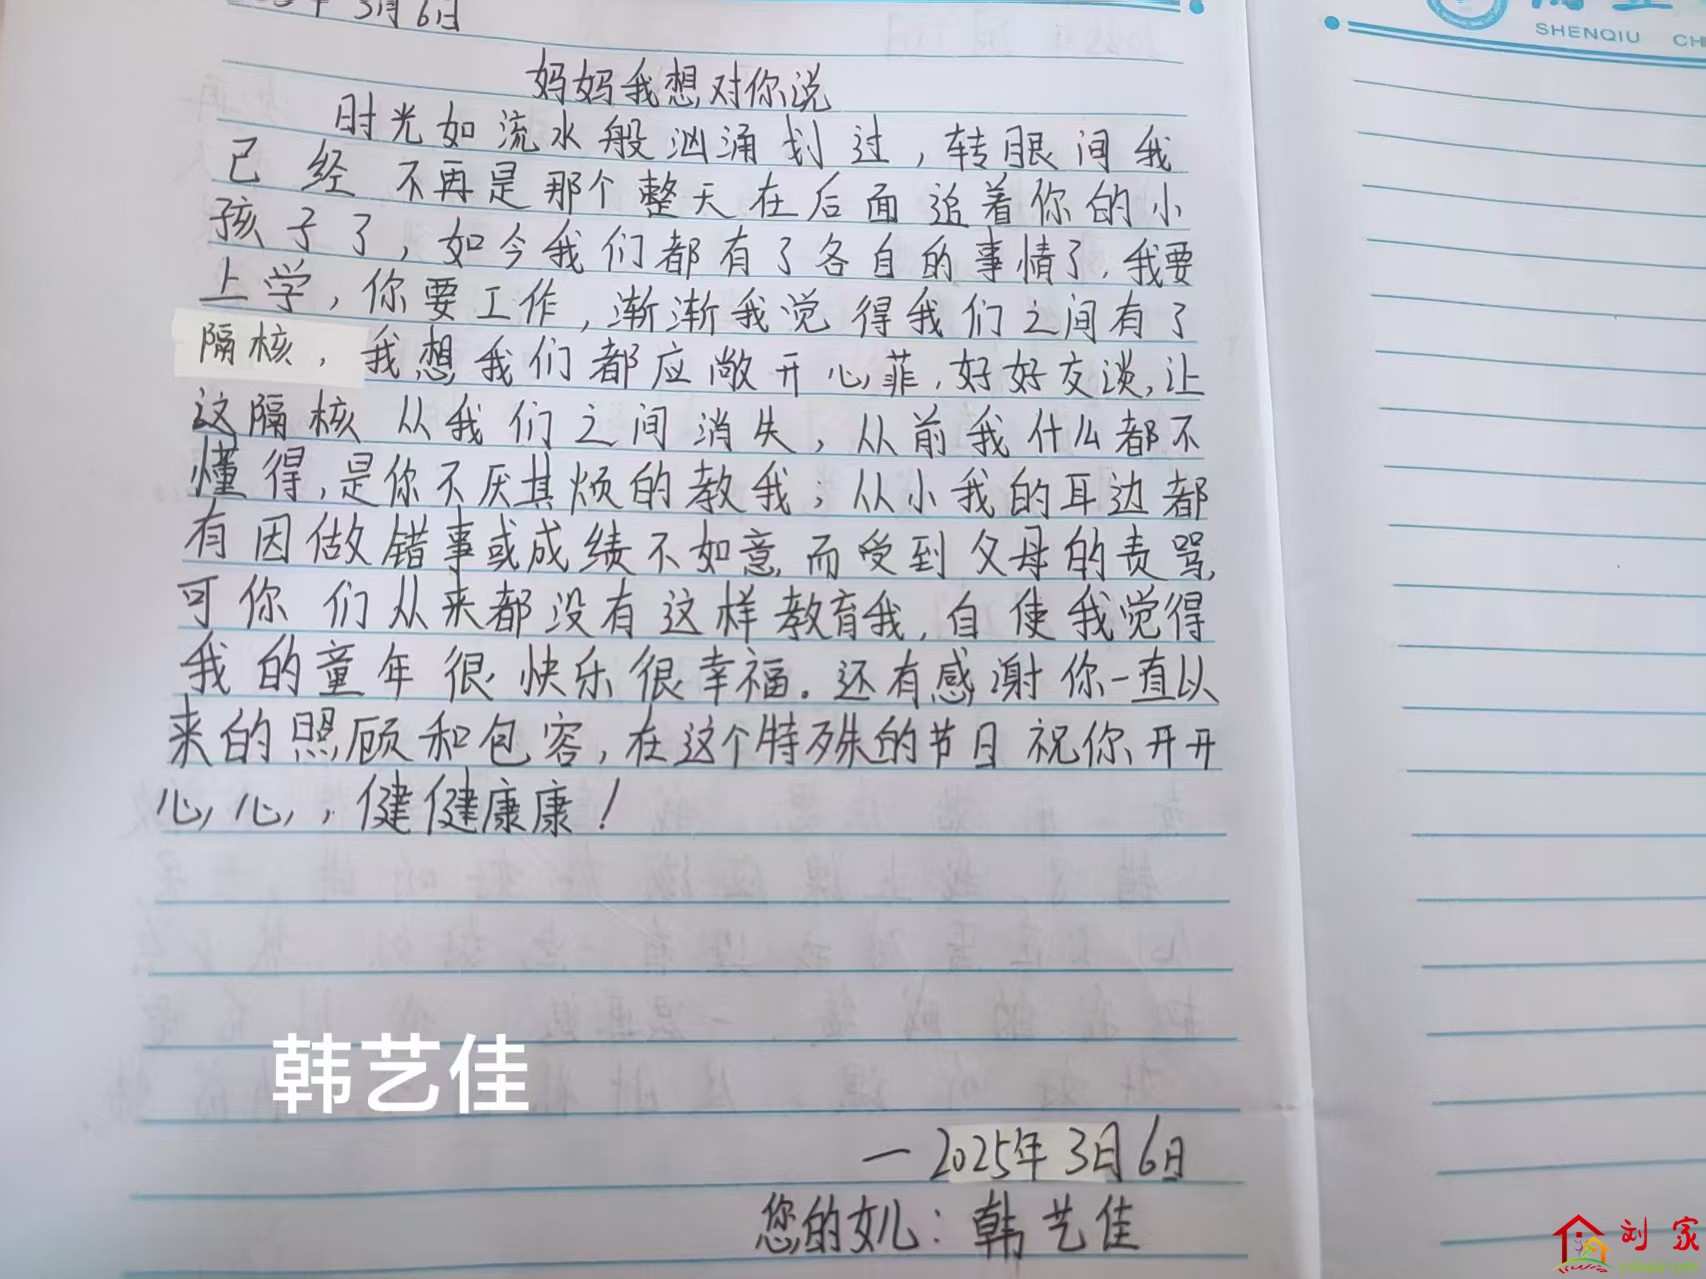 年3月6日
SHENQIU
妈妈我想对你说
时光如流水般汹涌划过，转眼间我
已经不再是那个整天在后面追着你的小
孩子了，如今我们都有了各自的事情了，我要
上学，你要工作，渐渐我觉得我们之间有了
隔核，我想我们都应敞开心菲，好好交谈，让
这隔核从我们之间消失，从前我什么都不
懂得，是你不厌其烦的教我；从小我的耳边都
有因做错事或成绩不如意而受到父母的责骂，
可你们从来都没有这样教育我，自使我觉得
我的童年很快乐很幸福。还有感谢你一直以
来的照顾和包容，在这个特殊的节日祝你开开
心心，健健康康！
韩艺佳
一2025年3月6日
您的女儿：韩艺佳
刘家